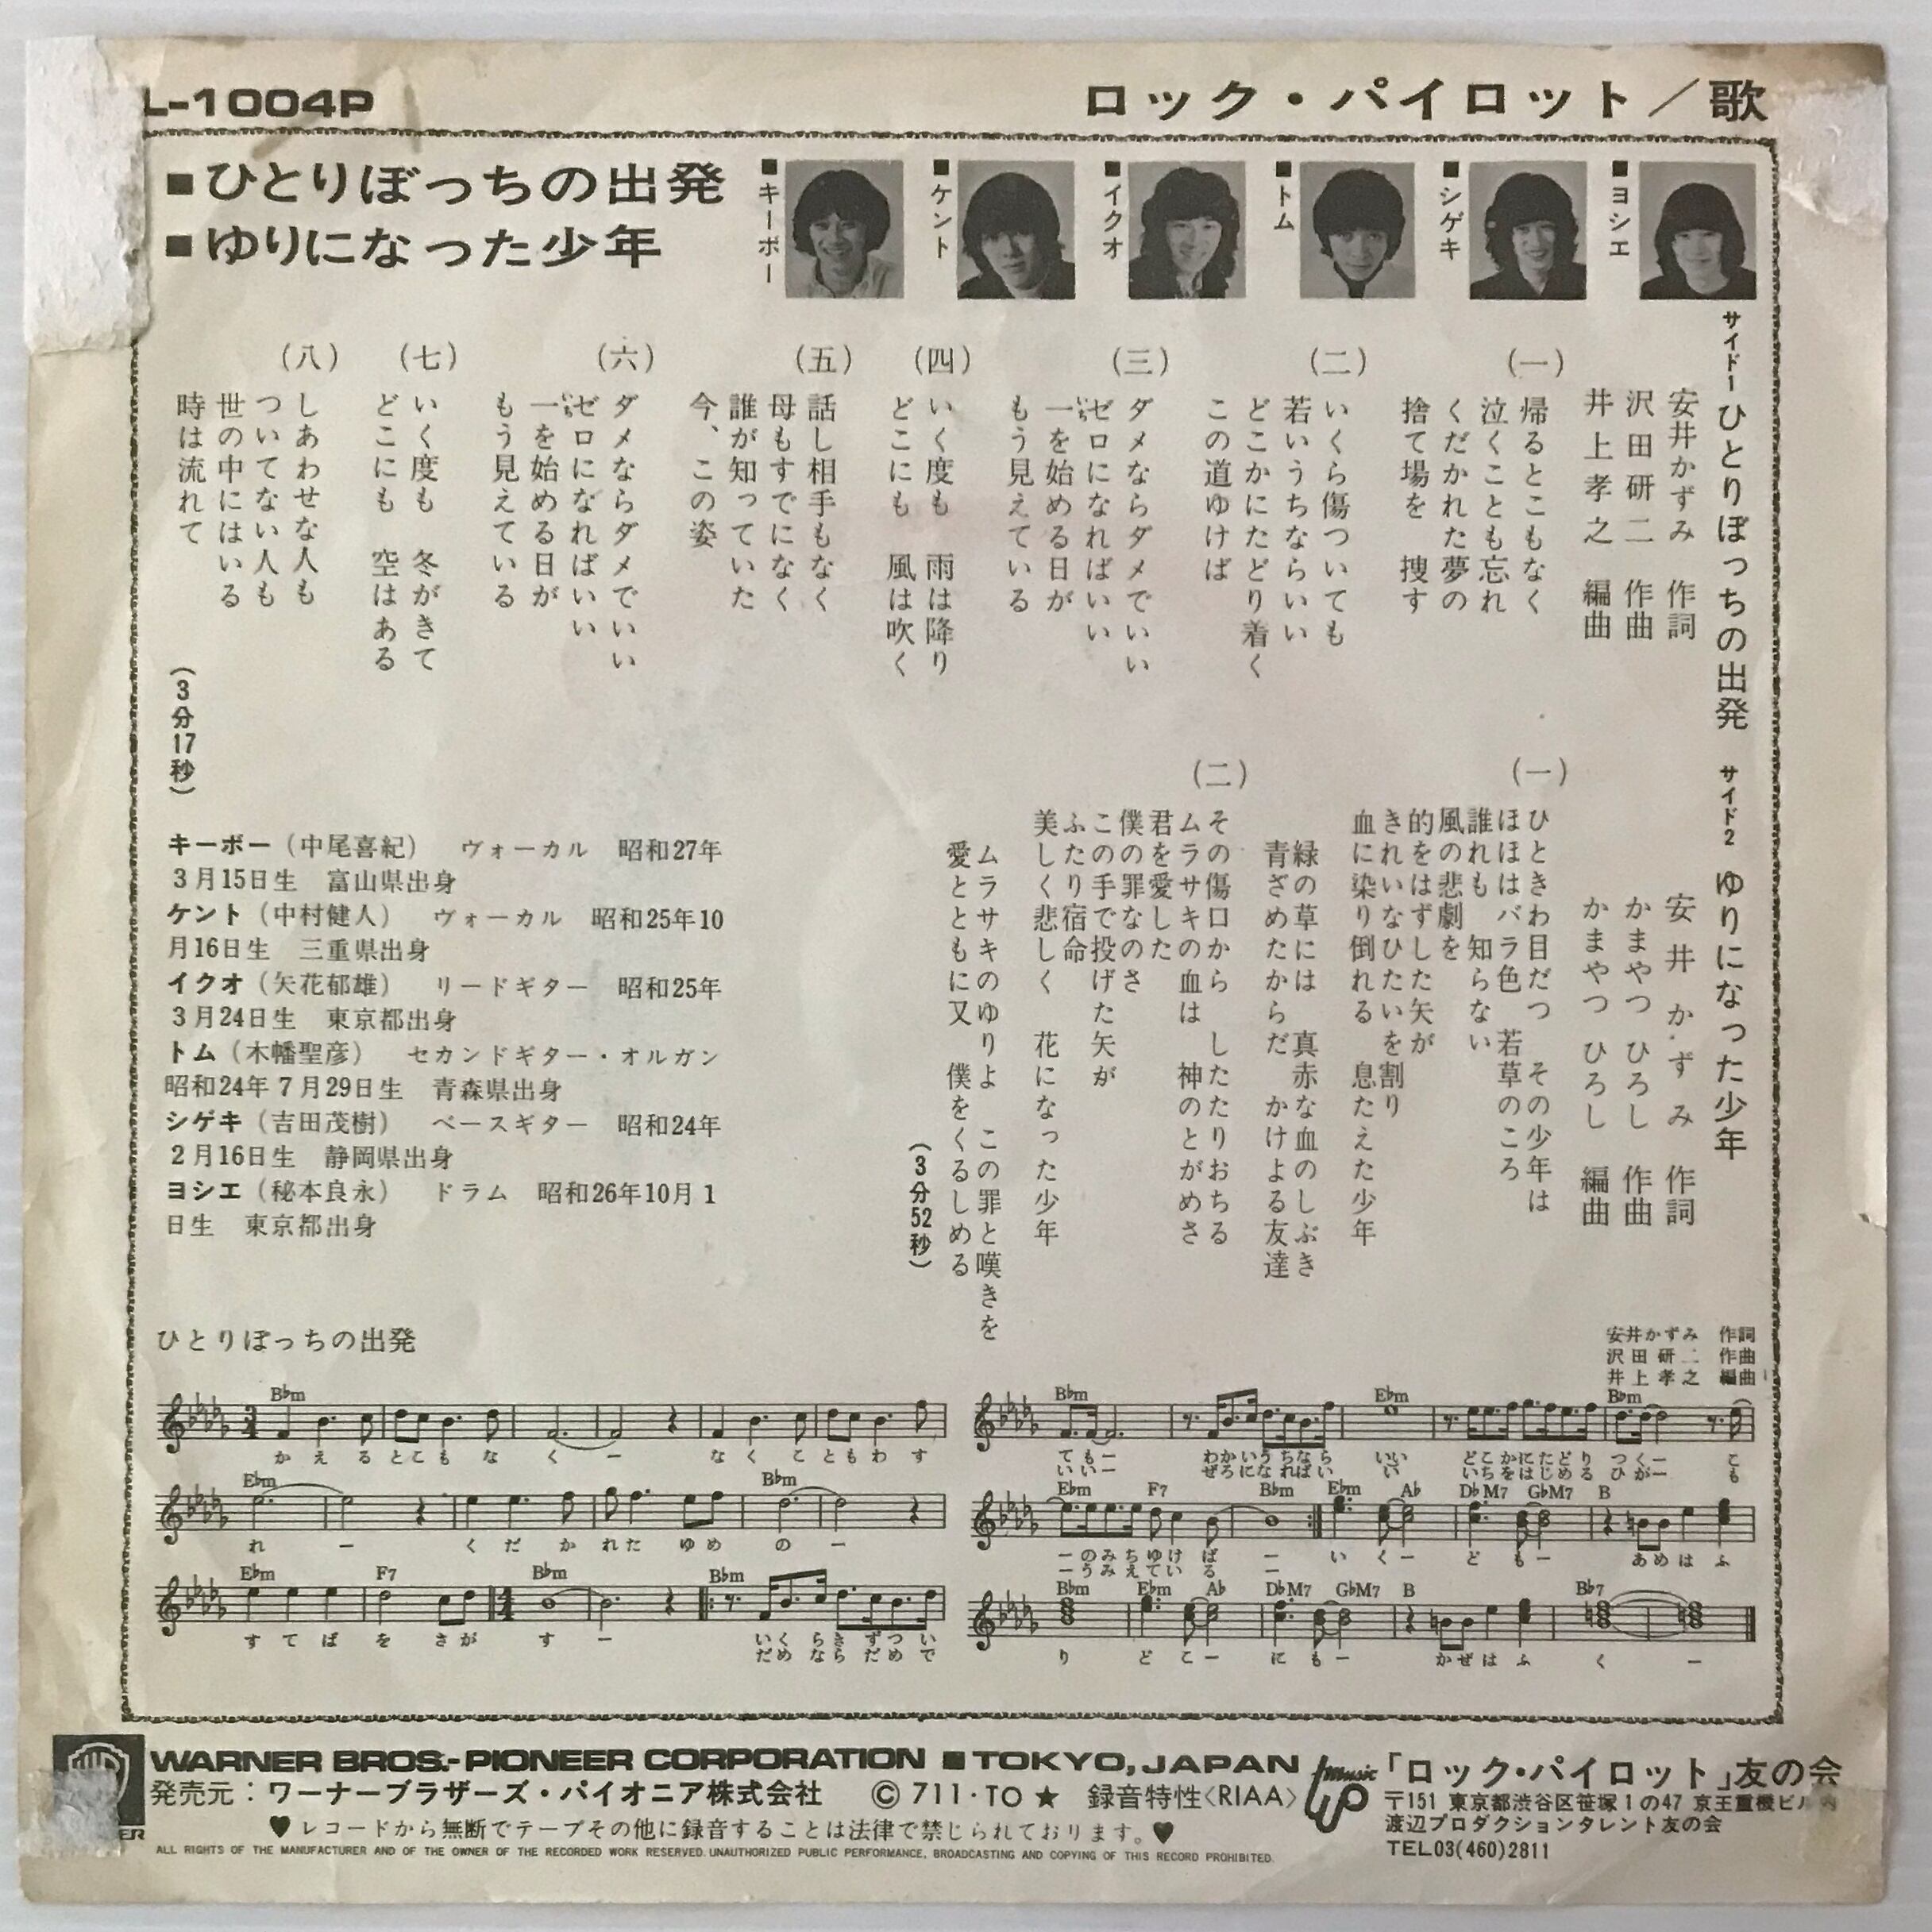 L-1004P
ロック・パイロット／歌
■ひとりぼっちの出発
■ゆりになった少年
■キーボー
■ケント
■イクオ
■トム
■シゲキ
■ヨシエ
サイド1 ひとりぼっちの出発
安井かずみ 作詞
沢田研二 作曲
井上孝之 編曲
(一)
帰るとこもなく
泣くことも忘れ
くだかれた夢の
捨て場を 捜す
(二)
いくら傷ついても
若いうちならいい
どこかにたどり着く
この道ゆけば
(三)
ダメならダメでいい
ゼロになればいい
一を始める日が
いち
もう見えている
(四)
いく度も 雨は降り
どこにも 風は吹く
(五)
話し相手もなく
母もすでになく
誰が知っていた
今、この姿
(六)
ダメならダメでいい
ゼロになればいい
一を始める日が
いち
もう見えている
(七)
いく度も 冬がきて
どこにも 空はある
(八)
しあわせな人も
ついてない人も
世の中にはいる
時は流れて
(3分17秒)
サイド2 ゆりになった少年
安井かずみ 作詞
かまやつひろし 作曲
かまやつひろし 編曲
(一)
ひときわ目だつ その少年は
ほほはバラ色 若草のころ
誰れも 知らない
風の悲劇を
的をはずした矢が
きれいなひたいを割り
血に染り倒れる 息たえた少年
緑の草には 真赤な血のしぶき
青ざめたからだ かけよる友達
(二)
その傷口から したたりおちる
ムラサキの血は 神のとがめさ
君を愛した
僕の罪なのさ
この手で投げた矢が
ふたり宿命
美しく悲しく 花になった少年
ムラサキのゆりよ この罪と嘆きを
愛とともに又 僕をくるしめる
(3分52秒)
キーボー（中尾喜紀） ヴォーカル 昭和27年
3月15日生 富山県出身
ケント（中村健人） ヴォーカル 昭和25年10
月16日生 三重県出身
イクオ（矢花郁雄） リードギター 昭和25年
3月24日生 東京都出身
トム（木幡聖彦） セカンドギター・オルガン
昭和24年7月29日生 青森県出身
シゲキ（吉田茂樹） ベースギター 昭和24年
2月16日生 静岡県出身
ヨシエ（秘本良永） ドラム 昭和26年10月1
日生 東京都出身
ひとりぼっちの出発
安井かずみ 作詞
沢田研二 作曲
井上孝之 編曲
B♭m
か え る と こ も な く ー な く こ と も わ す
E♭m B♭m
れ ー く だ か れ た ゆ め の ー
E♭m F7 B♭m B♭m
す て ば を さ が す ー い く ら き ず つ い
だ め な ら だ め で
B♭m E♭m B♭m
て も ー わ か い う ち な ら い い ど こ か に た ど り つ く ー こ
い い ー ぜ ろ に な れ ば い い い ち を は じ め る ひ が ー も
E♭m F7 B♭m E♭m A♭ D♭M7 G♭M7 B
ー の み ち ゆ け ば ー い く ー ど も ー あ め は ふ
ー う み え て い る ー
B♭m E♭m A♭ D♭M7 G♭M7 B B♭7
り ど こ ー に も ー か ぜ は ふ く ー
WARNER BROS.-PIONEER CORPORATION ■ TOKYO, JAPAN
発売元：ワーナーブラザーズ・パイオニア株式会社 © 711・TO ★ 録音特性〈RIAA〉
♥ レコードから無断でテープその他に録音することは法律で禁じられております。♥
ALL RIGHTS OF THE MANUFACTURER AND OF THE OWNER OF THE RECORDED WORK RESERVED. UNAUTHORIZED PUBLIC PERFORMANCE, BROADCASTING AND COPYING OF THIS RECORD PROHIBITED.
music up
「ロック・パイロット」友の会
〒151 東京都渋谷区笹塚1の47 京王重機ビル内
渡辺プロダクションタレント友の会
TEL03(460)2811